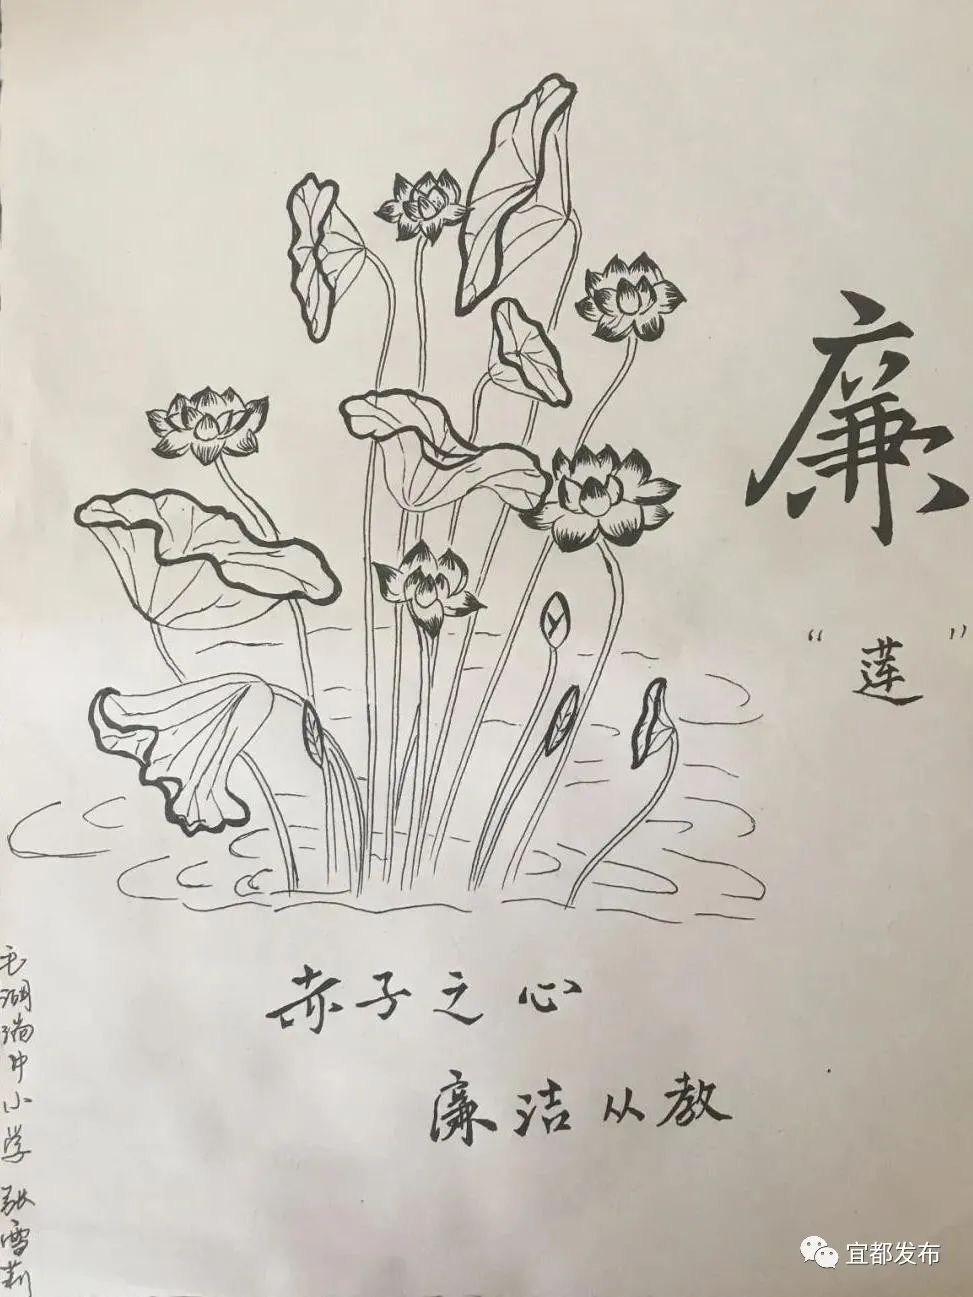 廉
“莲”
赤子之心
廉洁从教
毛湖埫中小学 张雪莉
宜都发布